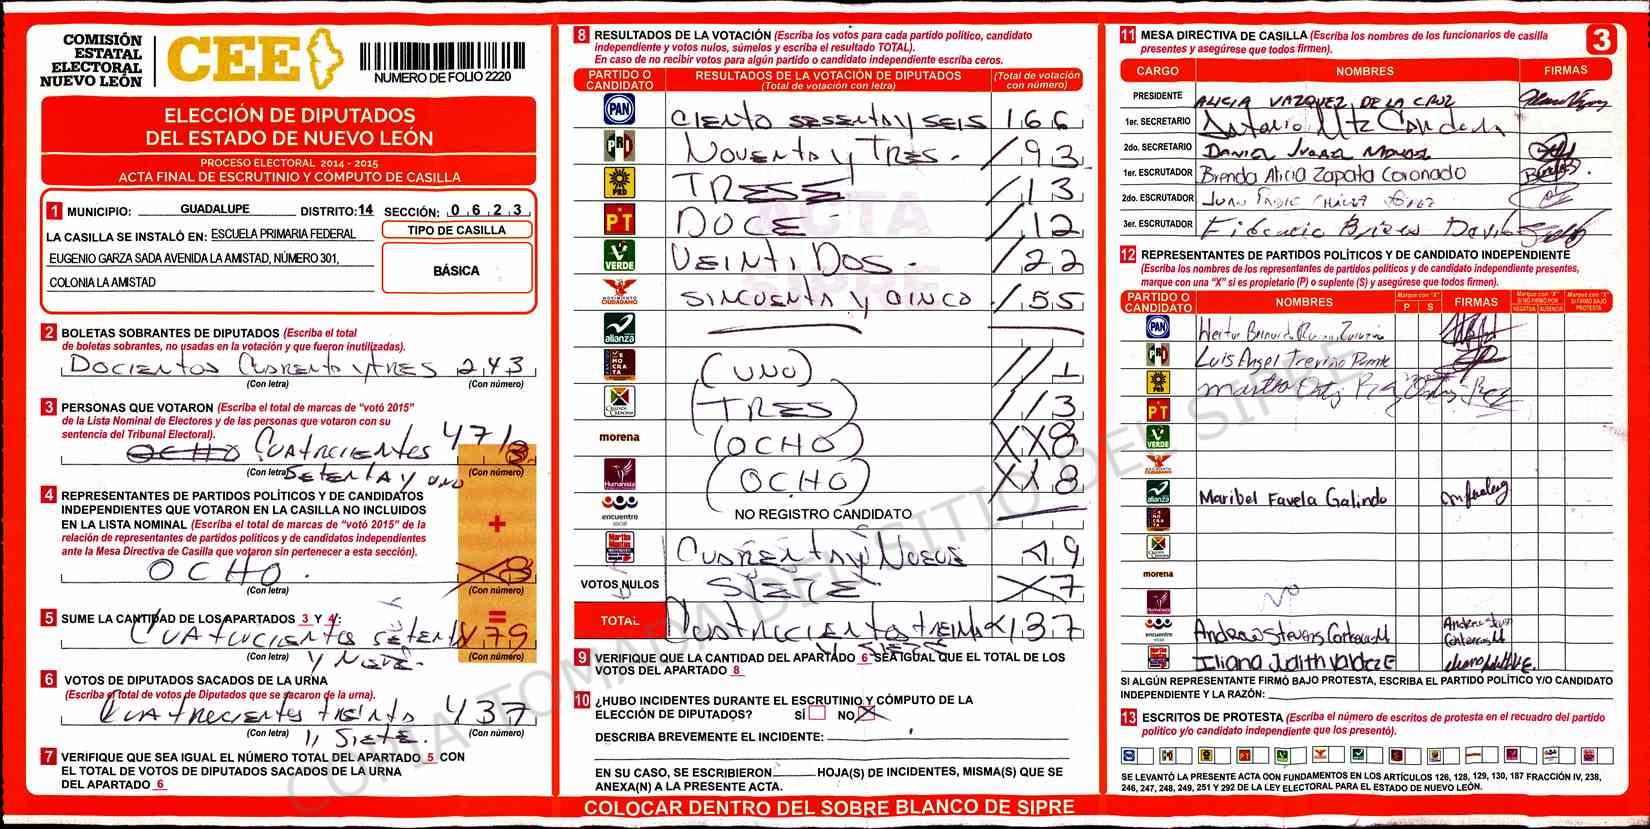 COMISIÓN
ESTATAL
ELECTORAL
NUEVO LEÓN
CEE
NUMERO DE FOLIO 2220
ELECCIÓN DE DIPUTADOS
DEL ESTADO DE NUEVO LEÓN
PROCESO ELECTORAL 2014 - 2015
ACTA FINAL DE ESCRUTINIO Y CÓMPUTO DE CASILLA
1 MUNICIPIO: GUADALUPE DISTRITO: 14 SECCIÓN: 0 6 2 3
LA CASILLA SE INSTALÓ EN: ESCUELA PRIMARIA FEDERAL
EUGENIO GARZA SADA AVENIDA LA AMISTAD, NÚMERO 301,
COLONIA LA AMISTAD
TIPO DE CASILLA
BÁSICA
2 BOLETAS SOBRANTES DE DIPUTADOS (Escriba el total
de boletas sobrantes, no usadas en la votación y que fueron inutilizadas).
DOCIENTOS CUARENTA Y TRES 243
(Con letra) (Con número)
3 PERSONAS QUE VOTARON (Escriba el total de marcas de "votó 2015"
de la Lista Nominal de Electores y de las personas que votaron con su
sentencia del Tribunal Electoral).
OCHO CUATROCIENTOS 471
(Con letra) SETENTA Y UNO (Con número)
4 REPRESENTANTES DE PARTIDOS POLÍTICOS Y DE CANDIDATOS
INDEPENDIENTES QUE VOTARON EN LA CASILLA NO INCLUIDOS
EN LA LISTA NOMINAL (Escriba el total de marcas de "votó 2015" de la
relación de representantes de partidos políticos y de candidatos independientes
ante la Mesa Directiva de Casilla que votaron sin pertenecer a esta sección).
+
OCHO. XX8
(Con letra) (Con número)
=
5 SUME LA CANTIDAD DE LOS APARTADOS 3 Y 4:
CUATROCIENTOS SETENTA 479
Y NUEVE.
(Con letra) (Con número)
6 VOTOS DE DIPUTADOS SACADOS DE LA URNA
(Escriba el total de votos de Diputados que se sacaron de la urna).
CUATROCIENTOS TREINTA 437
(Con letra) Y SIETE. (Con número)
7 VERIFIQUE QUE SEA IGUAL EL NÚMERO TOTAL DEL APARTADO 5 CON
EL TOTAL DE VOTOS DE DIPUTADOS SACADOS DE LA URNA
DEL APARTADO 6
8 RESULTADOS DE LA VOTACIÓN (Escriba los votos para cada partido político, candidato
independiente y votos nulos, súmelos y escriba el resultado TOTAL).
En caso de no recibir votos para algún partido o candidato independiente escriba ceros.
PARTIDO O CANDIDATO
RESULTADOS DE LA VOTACIÓN DE DIPUTADOS
(Total de votación con letra)
(Total de votación con número)
PAN CIENTO SESENTA Y SEIS 166
PRI NOVENTA Y TRES. /93
PRD TRESE /13
PT DOCE /12
VERDE VEINTIDOS. /22
MOVIMIENTO CIUDADANO SINCUENTA Y CINCO /55
alianza
DEMOCRATA (UNO) //1
CRUZADA CIUDADANA (TRES) //3
morena (OCHO) XX8
Humanista (OCHO) XX8
encuentro social NO REGISTRO CANDIDATO
Martha CUARENTA Y NUEVE 49
VOTOS NULOS SIETE. X7
TOTAL CUATROCIENTOS TREINTA 437
Y SIETE
9 VERIFIQUE QUE LA CANTIDAD DEL APARTADO 6 SEA IGUAL QUE EL TOTAL DE LOS
VOTOS DEL APARTADO 8
10 ¿HUBO INCIDENTES DURANTE EL ESCRUTINIO Y CÓMPUTO DE LA
ELECCIÓN DE DIPUTADOS? SÍ NO X
DESCRIBA BREVEMENTE EL INCIDENTE:
EN SU CASO, SE ESCRIBIERON HOJA(S) DE INCIDENTES, MISMA(S) QUE SE
ANEXA(N) A LA PRESENTE ACTA.
COLOCAR DENTRO DEL SOBRE BLANCO DE SIPRE
11 MESA DIRECTIVA DE CASILLA (Escriba los nombres de los funcionarios de casilla
presentes y asegúrese que todos firmen).
3
CARGO NOMBRES FIRMAS
PRESIDENTE ALICIA VAZQUEZ DE LA CRUZ
1er. SECRETARIO Antonio Mtz
2do. SECRETARIO DANIEL JUAREZ
1er. ESCRUTADOR Brenda Alicia Zapata Coronado
2do. ESCRUTADOR JUAN
3er. ESCRUTADOR
12 REPRESENTANTES DE PARTIDOS POLÍTICOS Y DE CANDIDATO INDEPENDIENTE
(Escriba los nombres de los representantes de partidos políticos y de candidato independiente presentes,
marque con una "X" si es propietario (P) o suplente (S) y asegúrese que todos firmen).
PARTIDO O CANDIDATO NOMBRES Marque con "X" P S FIRMAS Marque con "X" SI NO FIRMÓ POR NEGATIVA AUSENCIA Marque con "X" SI FIRMÓ BAJO PROTESTA
PAN Hector
PRI Luis Angel Trevino
PRD
PT
VERDE
MOVIMIENTO CIUDADANO
alianza Maribel Favela Galindo
DEMOCRATA
morena
Humanista NO
encuentro social Andrew Stevens Contreras M
Iliana Judith Valdez E
SI ALGÚN REPRESENTANTE FIRMÓ BAJO PROTESTA, ESCRIBA EL PARTIDO POLÍTICO Y/O CANDIDATO
INDEPENDIENTE Y LA RAZÓN:
13 ESCRITOS DE PROTESTA (Escriba el número de escritos de protesta en el recuadro del partido
político y/o candidato independiente que los presentó).
SE LEVANTÓ LA PRESENTE ACTA CON FUNDAMENTOS EN LOS ARTÍCULOS 126, 128, 129, 130, 187 FRACCIÓN IV, 238,
246, 247, 248, 249, 251 Y 292 DE LA LEY ELECTORAL PARA EL ESTADO DE NUEVO LEÓN.
ACTA
SIPRE
COPIA TOMADA DEL SITIO DEL SIPRE